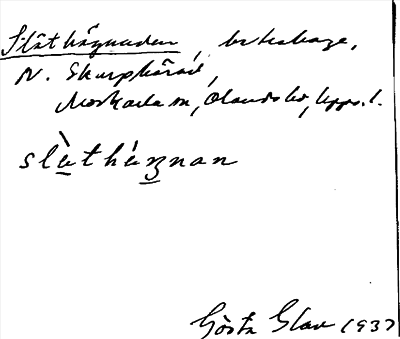 Slåthägnaden, beteshage,
N. Skarphärad,
Markarla sn, Olands hd, Upps.l.
slàthágnan
Gösta Glav 1937